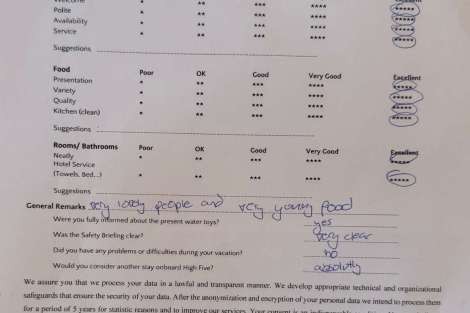 Welcome * ** *** **** *****
Polite * ** *** **** *****
Availability * ** *** **** *****
Service * ** *** **** *****
Suggestions
Food Poor OK Good Very Good Excellent
Presentation * ** *** **** *****
Variety * ** *** **** *****
Quality * ** *** **** *****
Kitchen (clean) * ** *** **** *****
Suggestions
Rooms/ Bathrooms Poor OK Good Very Good Excellent
Neatly * ** *** **** *****
Hotel Service
(Towels, Bed...) * ** *** **** *****
Suggestions
General Remarks very lovely people and very food
Were you fully informed about the present water toys? yes
Was the Safety Briefing clear? very clear
Did you have any problems or difficulties during your vacation? no
Would you consider another stay onboard High Five? absolutly
We assure you that we process your data in a lawful and transparent manner. We develop appropriate technical and organizational
safeguards that ensure the security of your data. After the anonymization and encryption of your personal data we intend to process them
for a period of 5 years for statistic reasons and to improve our services. Your consent is an